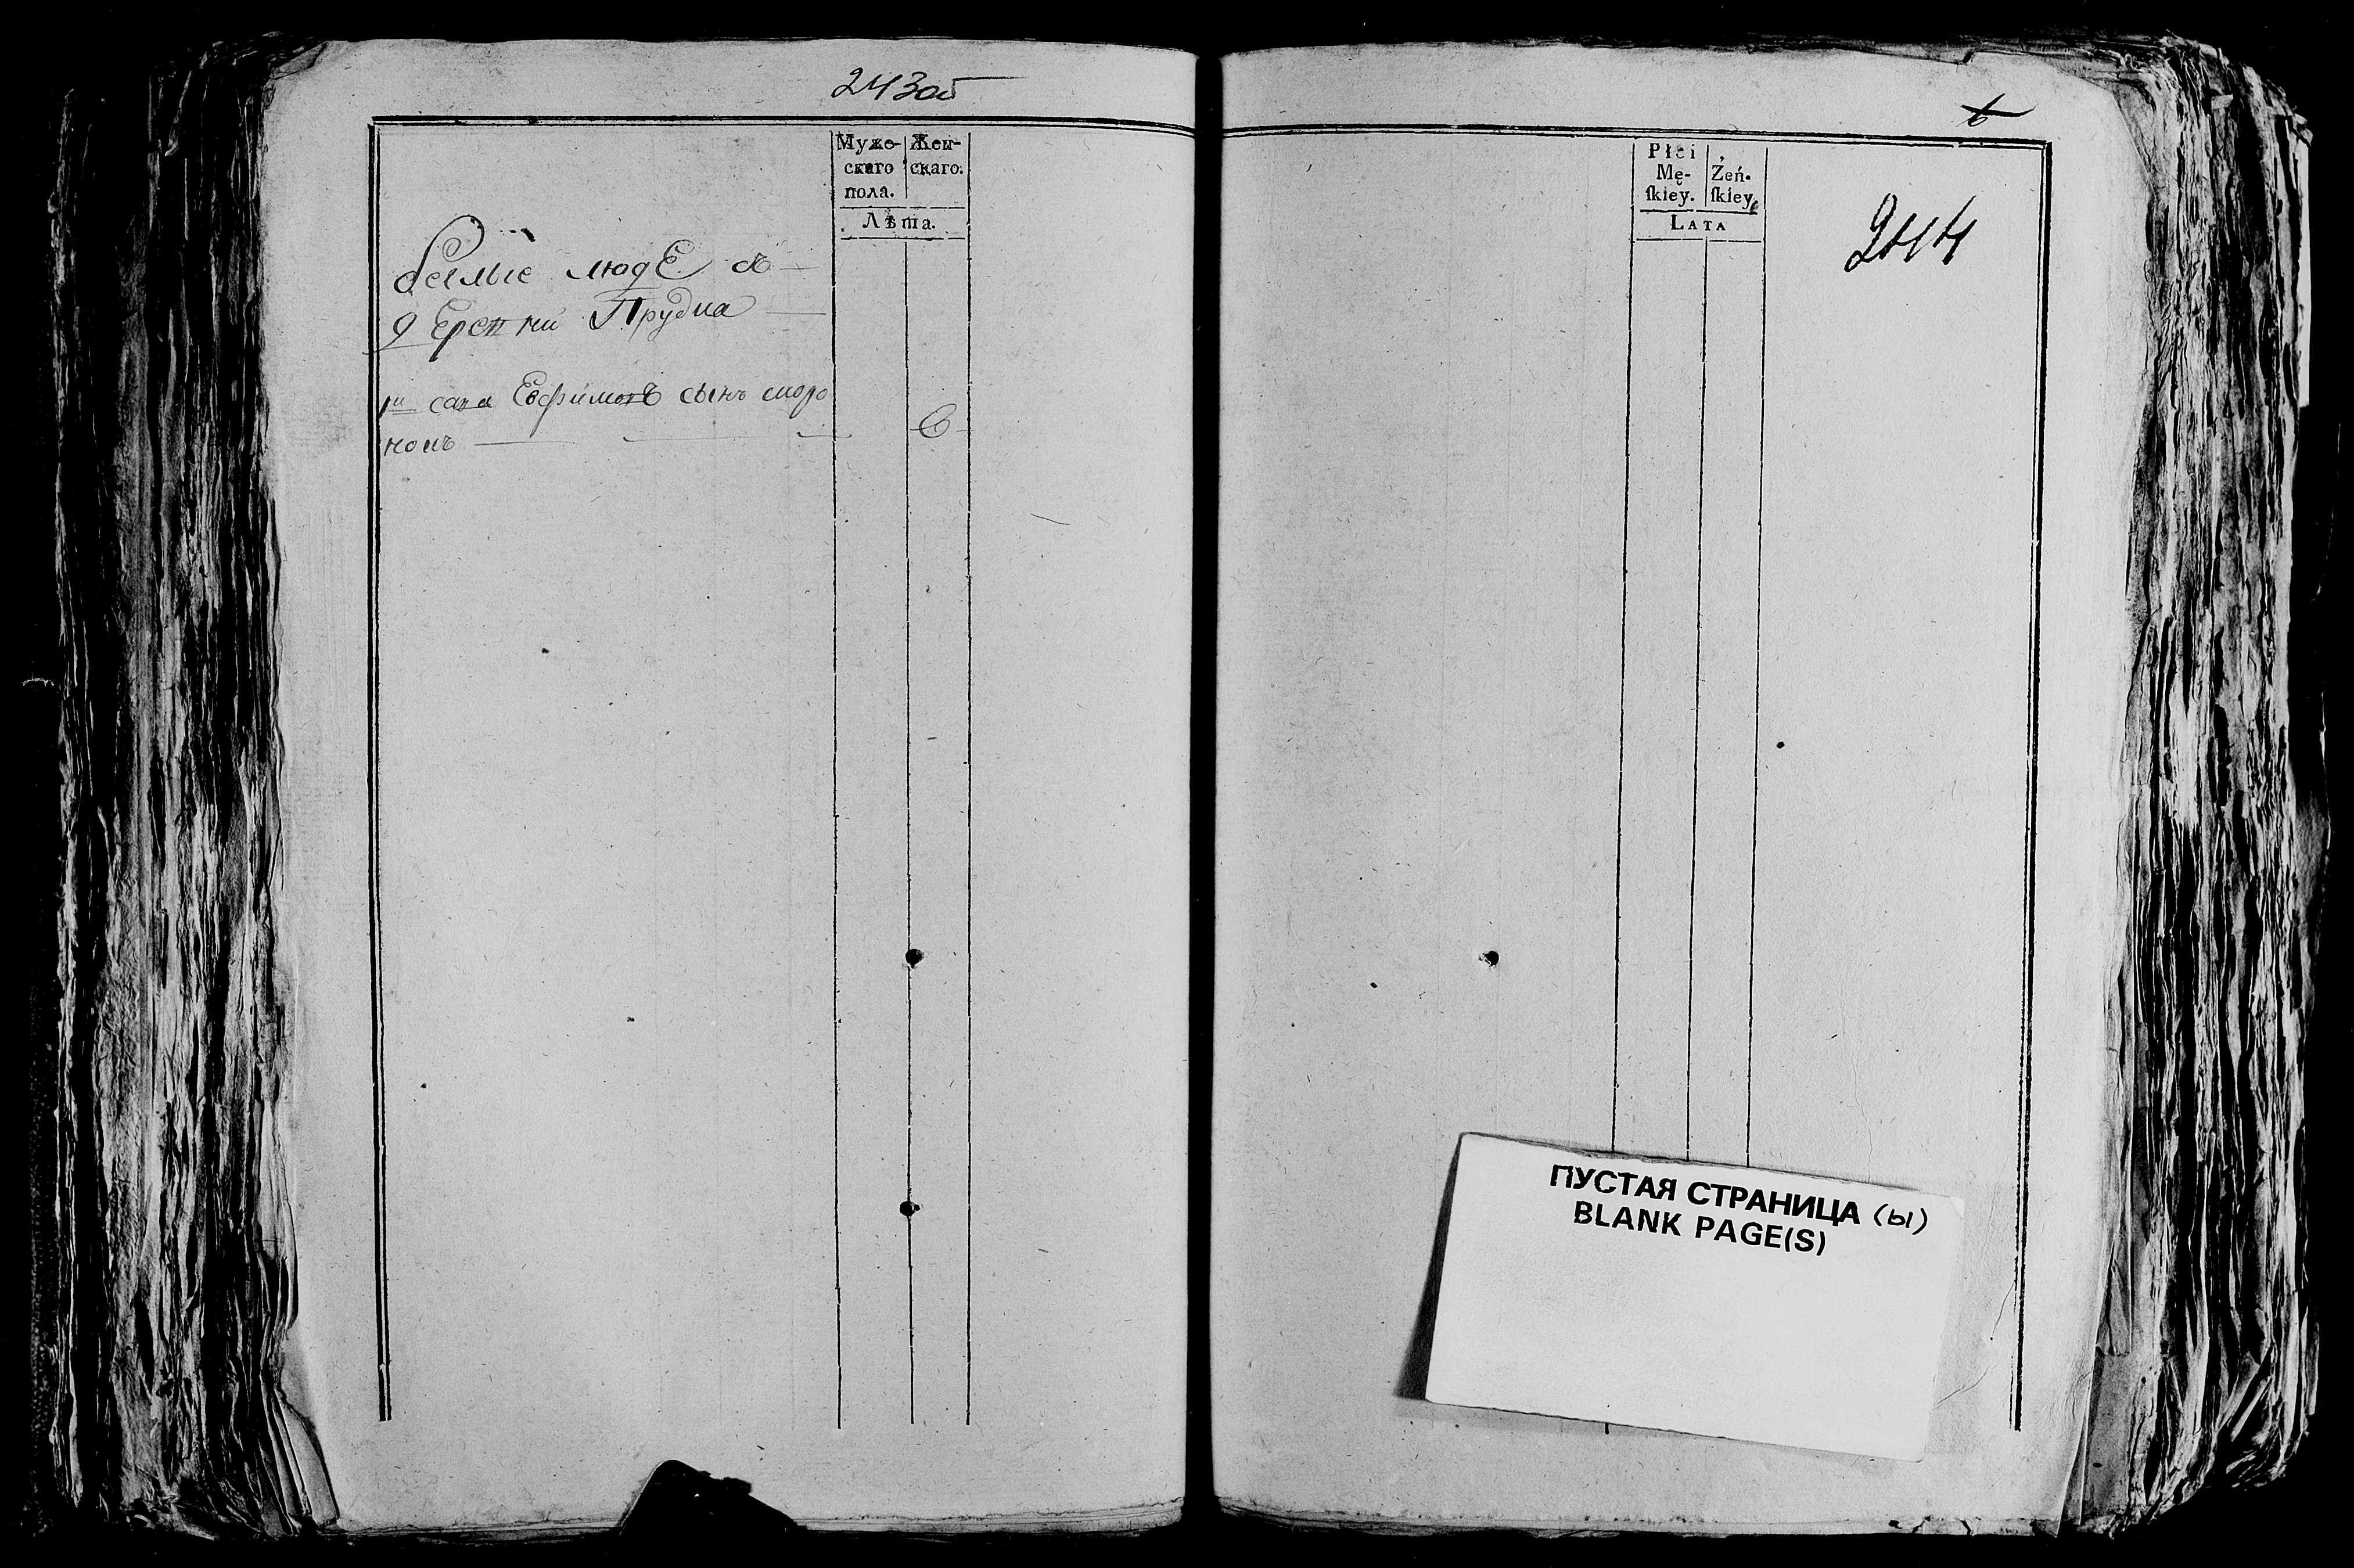 243об
Муже-
скаго
пола.
Жен-
скаго.
Лѣта.
беглые людЕ въ
дЕревни Прудка
сынъ
6
Płci
Mę-
ſkiey.
Żeń-
ſkiey.
LATA
6
244
ПУСТАЯ СТРАНИЦА (Ы)
BLANK PAGE(S)